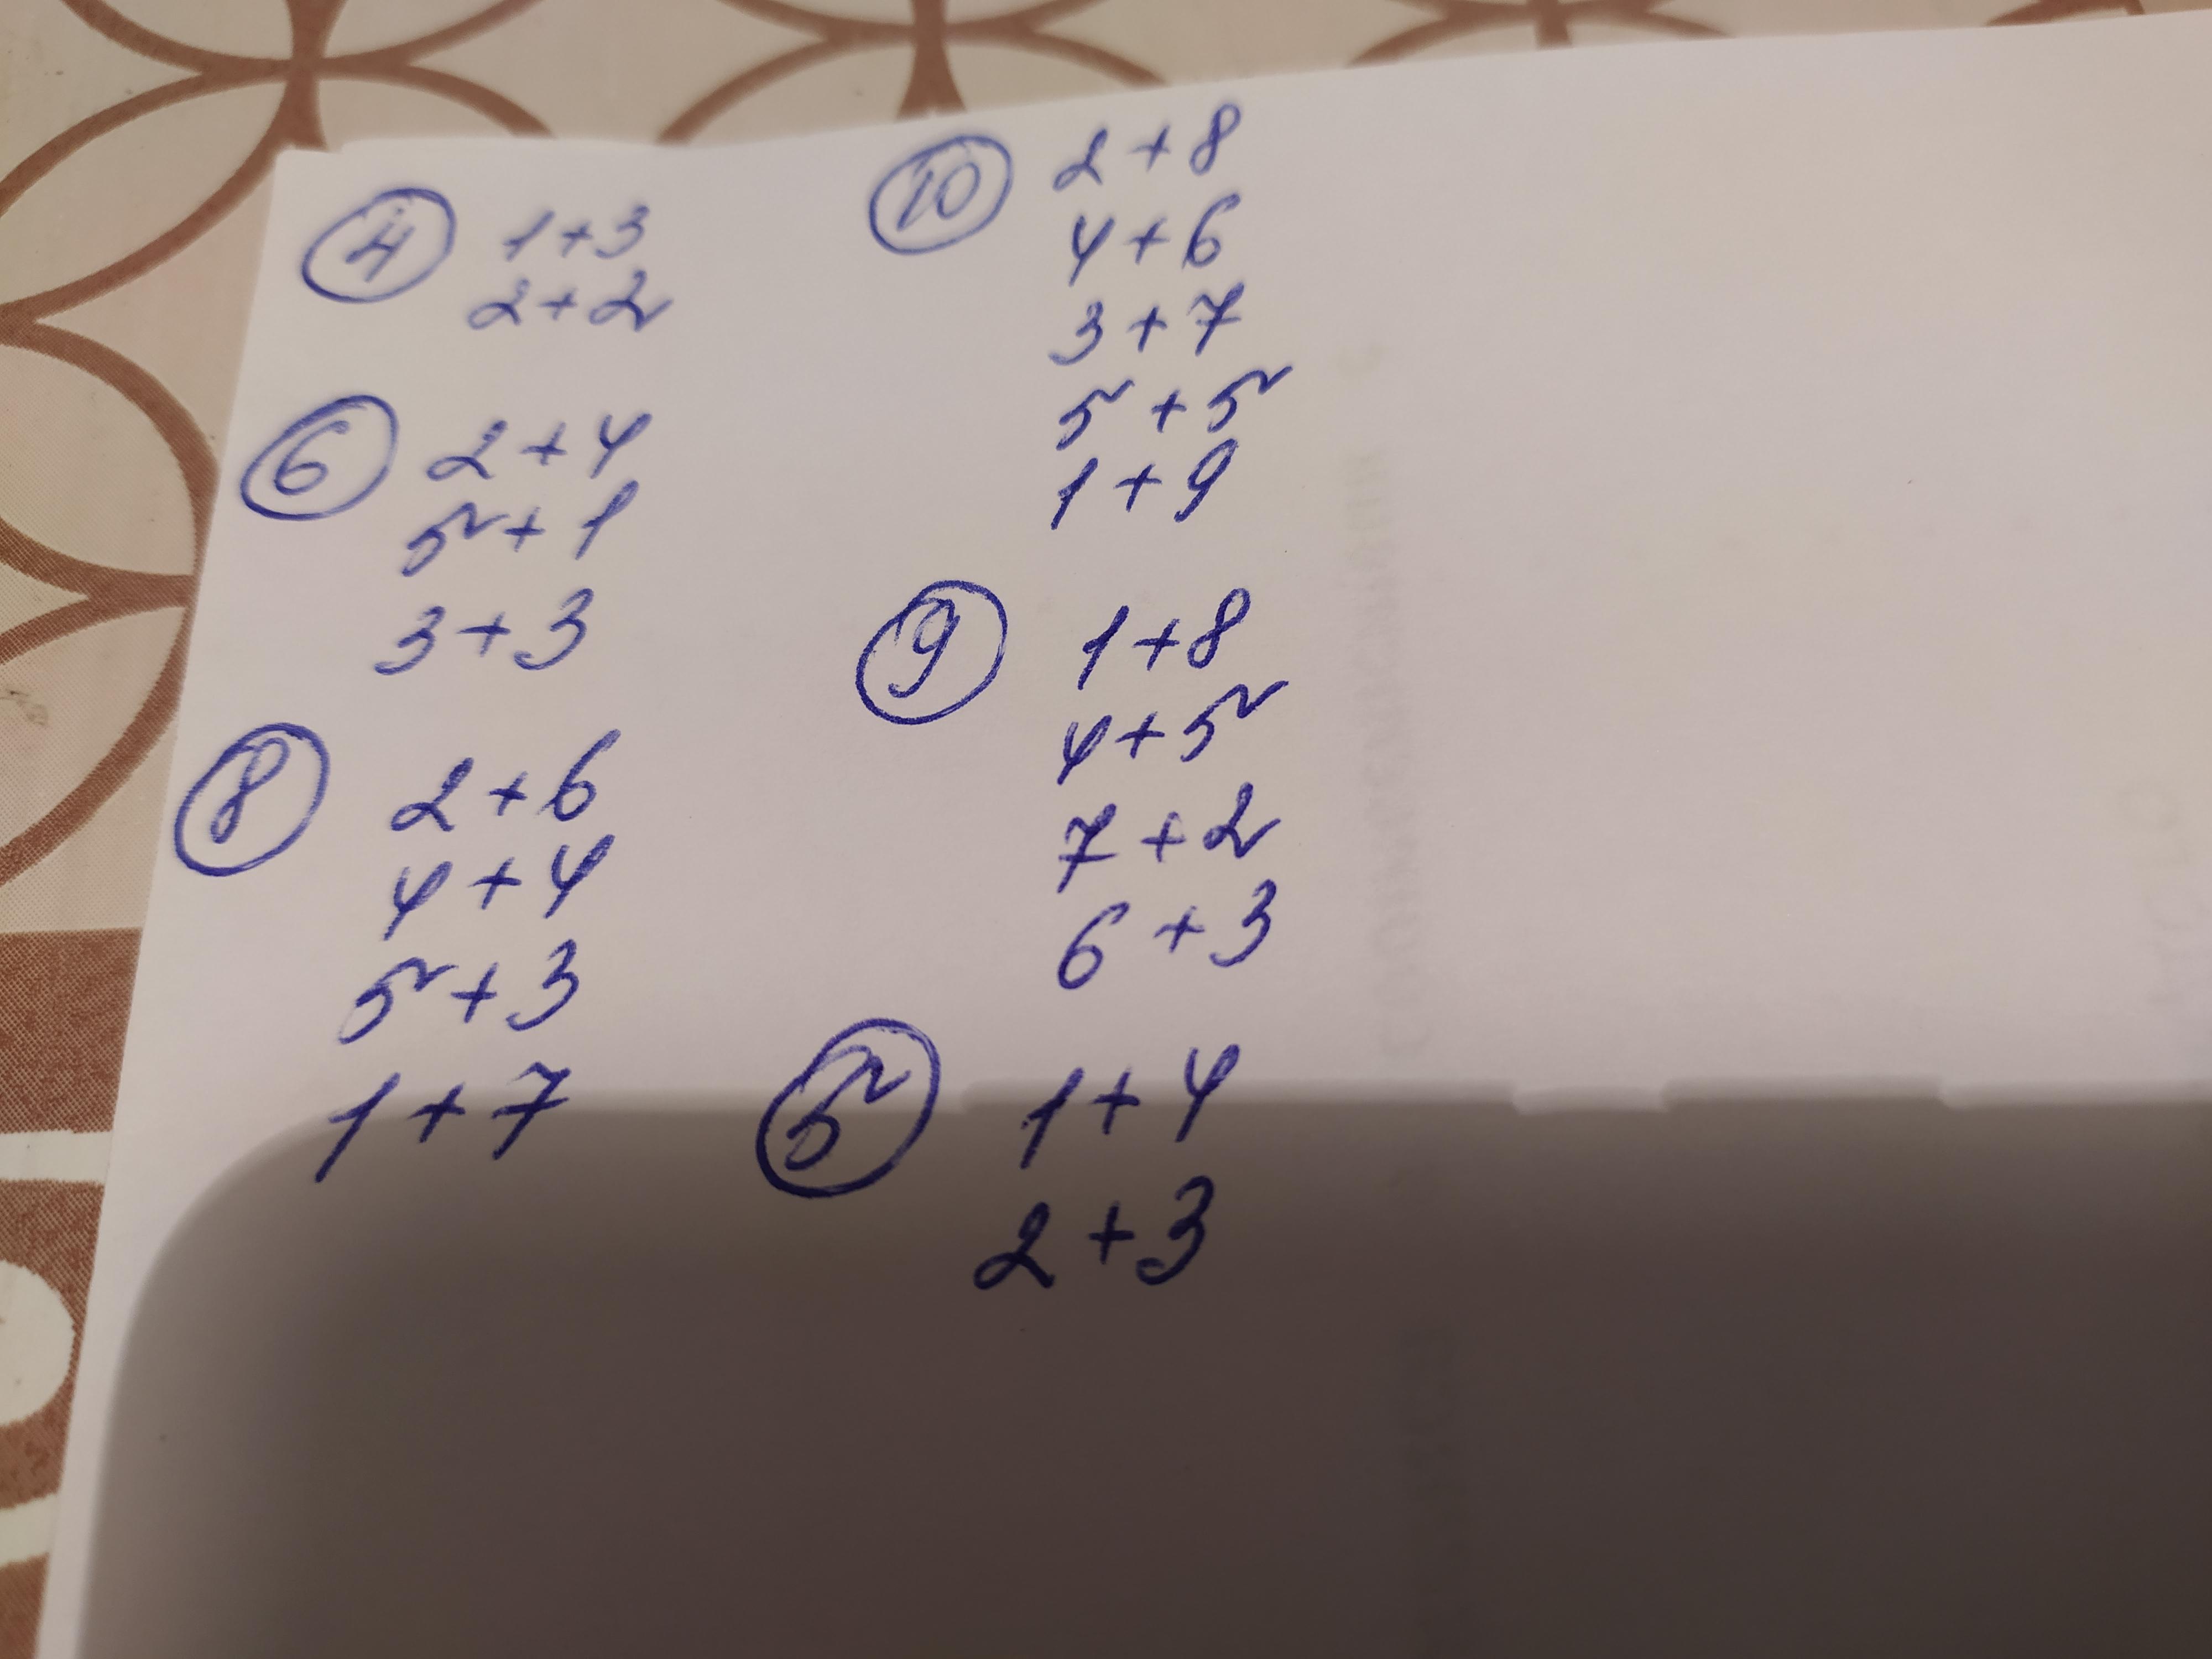 4 1+3
2+2
6 2+4
5+1
3+3
8 2+6
4+4
5+3
1+7
10 2+8
4+6
3+7
5+5
1+9
9 1+8
4+5
7+2
6+3
5 1+4
2+3